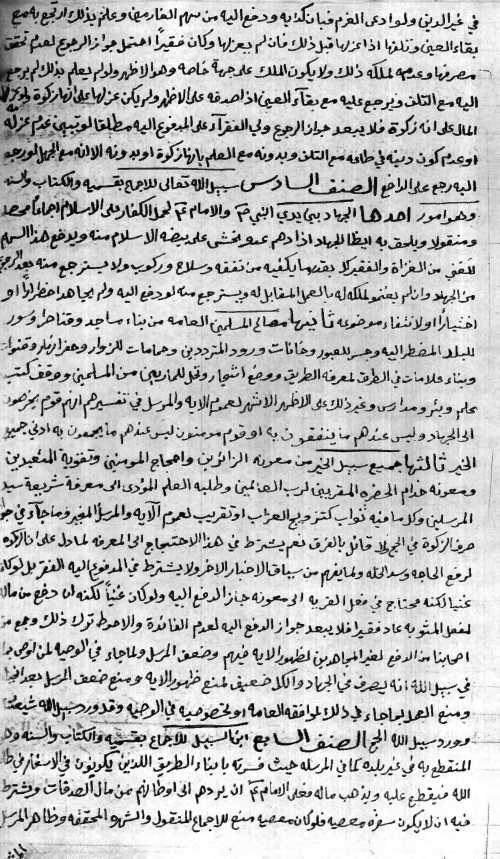 في غير الدين ولو ادعى الغرم فبان كذبه ودفع اليه من سهم الغارمين وعلم بذلك ارتجع مع
بقاء العين وتلفها اذا عزلها قبل ذلك فان لم يعزلها وكان فقيراً احتمل جواز الرجوع لعدم تحقق
مصرفها وعدمه لملكه ذلك ولا يكون الملك على جهة خاصة وهو الاظهر ولو لم يعلم بذلك لم يرجع
اليه مع التلف ويرجع عليه مع بقاء العين اذا صدقه على الاظهر ولو لم يكن عزلها على انها زكوة
المال على انه زكوة فلا يبعد جواز الرجوع ولي الفقراء على المدفوع اليه مطلقا لو تبين عدم عزله
او عدم كون دينه في طاعة مع التلف وبدونه مع العلم بانها زكوة او بدونه الا انه مع الجهل لو رجع
اليه رجع على الدافع الصنف السادس سبيل الله تعالى للاجماع بقسميه والكتاب والسنه
وهو امور احدها الجهاد بين يدي النبي ص والامام ع لحمل الكفار على الاسلام اجماعاً محصلا
ومنقولا ويلحق به ايضا الجهاد اذا دهم عدو يخشى على بيضه الاسلام منه ويدفع هذا السهم
للغني من الغزاة والفقير بقدر ما يكفيه من نفقه وسلاح وركوب ولا يسترجع منه بعد الرجوع
من الجهاد وان لم يغنم لملكه له بالعمل المقابل له ويسترجع منه لو دفع اليه ولم يجاهد اضطراراً او
اختياراً او لانتفاء موضوعه ثانيها مصالح المسلمين العامه من بناء مساجد وقناطر وسور
للبلد المضطر اليه وجسر للعبور وخانات ورود المترددين وحمامات للزوار وحفر انهار وقنوات
وبناء علامات في الطرق لمعرفة الطريق ووضع اشجار وظل للمارين من المسلمين ووقف كتب
علم وبئر ومدارس وغير ذلك على الاظهر الاشهر لعموم الايه والمرسل في تفسيرهم انهم قوم يخرجون
الى الجهاد وليس عندهم ما ينفقون به او قوم مومنون ليس عندهم ما يحجون به او في جميع
الخير ثالثها جميع سبيل الخير من معونه الزائرين والحجاج المومنين وتقوية المتعبدين
ومعونه خدام الحضره المقربين لرب العالمين وطلبه العلم المؤدى الى معرفة شريعة سيد
المرسلين وكل ما فيه ثواب كتزويج العزاب او تقريب لعموم الايه والمرسل المنجبر وما جاء في جواز
صرف الزكوة في الحج فلا قائل بالفرق نعم يشترط في هذا الاحتياج الى المعرفه لما دل على ان الزكوة
لرفع الحاجه وسد الخله ولما يفهم من سياق الاخبار الاخر ولا يشترط في المدفوع اليه الفقر بل لو كان
غنيا لكنه محتاج في فعل القربه الى معونه جاز الدفع اليه ولو كان غنياً لكنه ان دفع من ماله
لفعل المثوبه عاد فقيرا فلا يبعد جواز الدفع اليه لعدم الفائدة والاحوط ترك ذلك ومنع من
اصحابنا من الدفع لغير المجاهدين لظهور الايه فيهم وضعف المرسل ولما جاء في الوصيه لمن اوصى
في سبيل الله انه يصرف في الجهاد والكل ضعيف لمنع ظهور الايه ومنع ضعف المرسل بعد
ومنع العمل بما جاء في ذلك لموافقه العامه او لخصوصيه في الوصيه وقد ورد سبيل الله شيعتنا
وورد سبيل الله الحج الصنف السابع ابن السبيل للاجماع بقسميه والكتاب والسنه وهو
المنقطع به في غير بلده كما في المرسله حيث فسرته بابناء الطريق الذين يكونون في الاسفار في طاعة
الله فيقطع عليه ويذهب ماله فعلى الامام ع ان يردهم الى اوطانهم من مال الصدقات ويشترط
فيه ان لا يكون سفره معصيه فلو كان معصيه منع للاجماع المنقول والشهره المحققه وظاهر المرسل